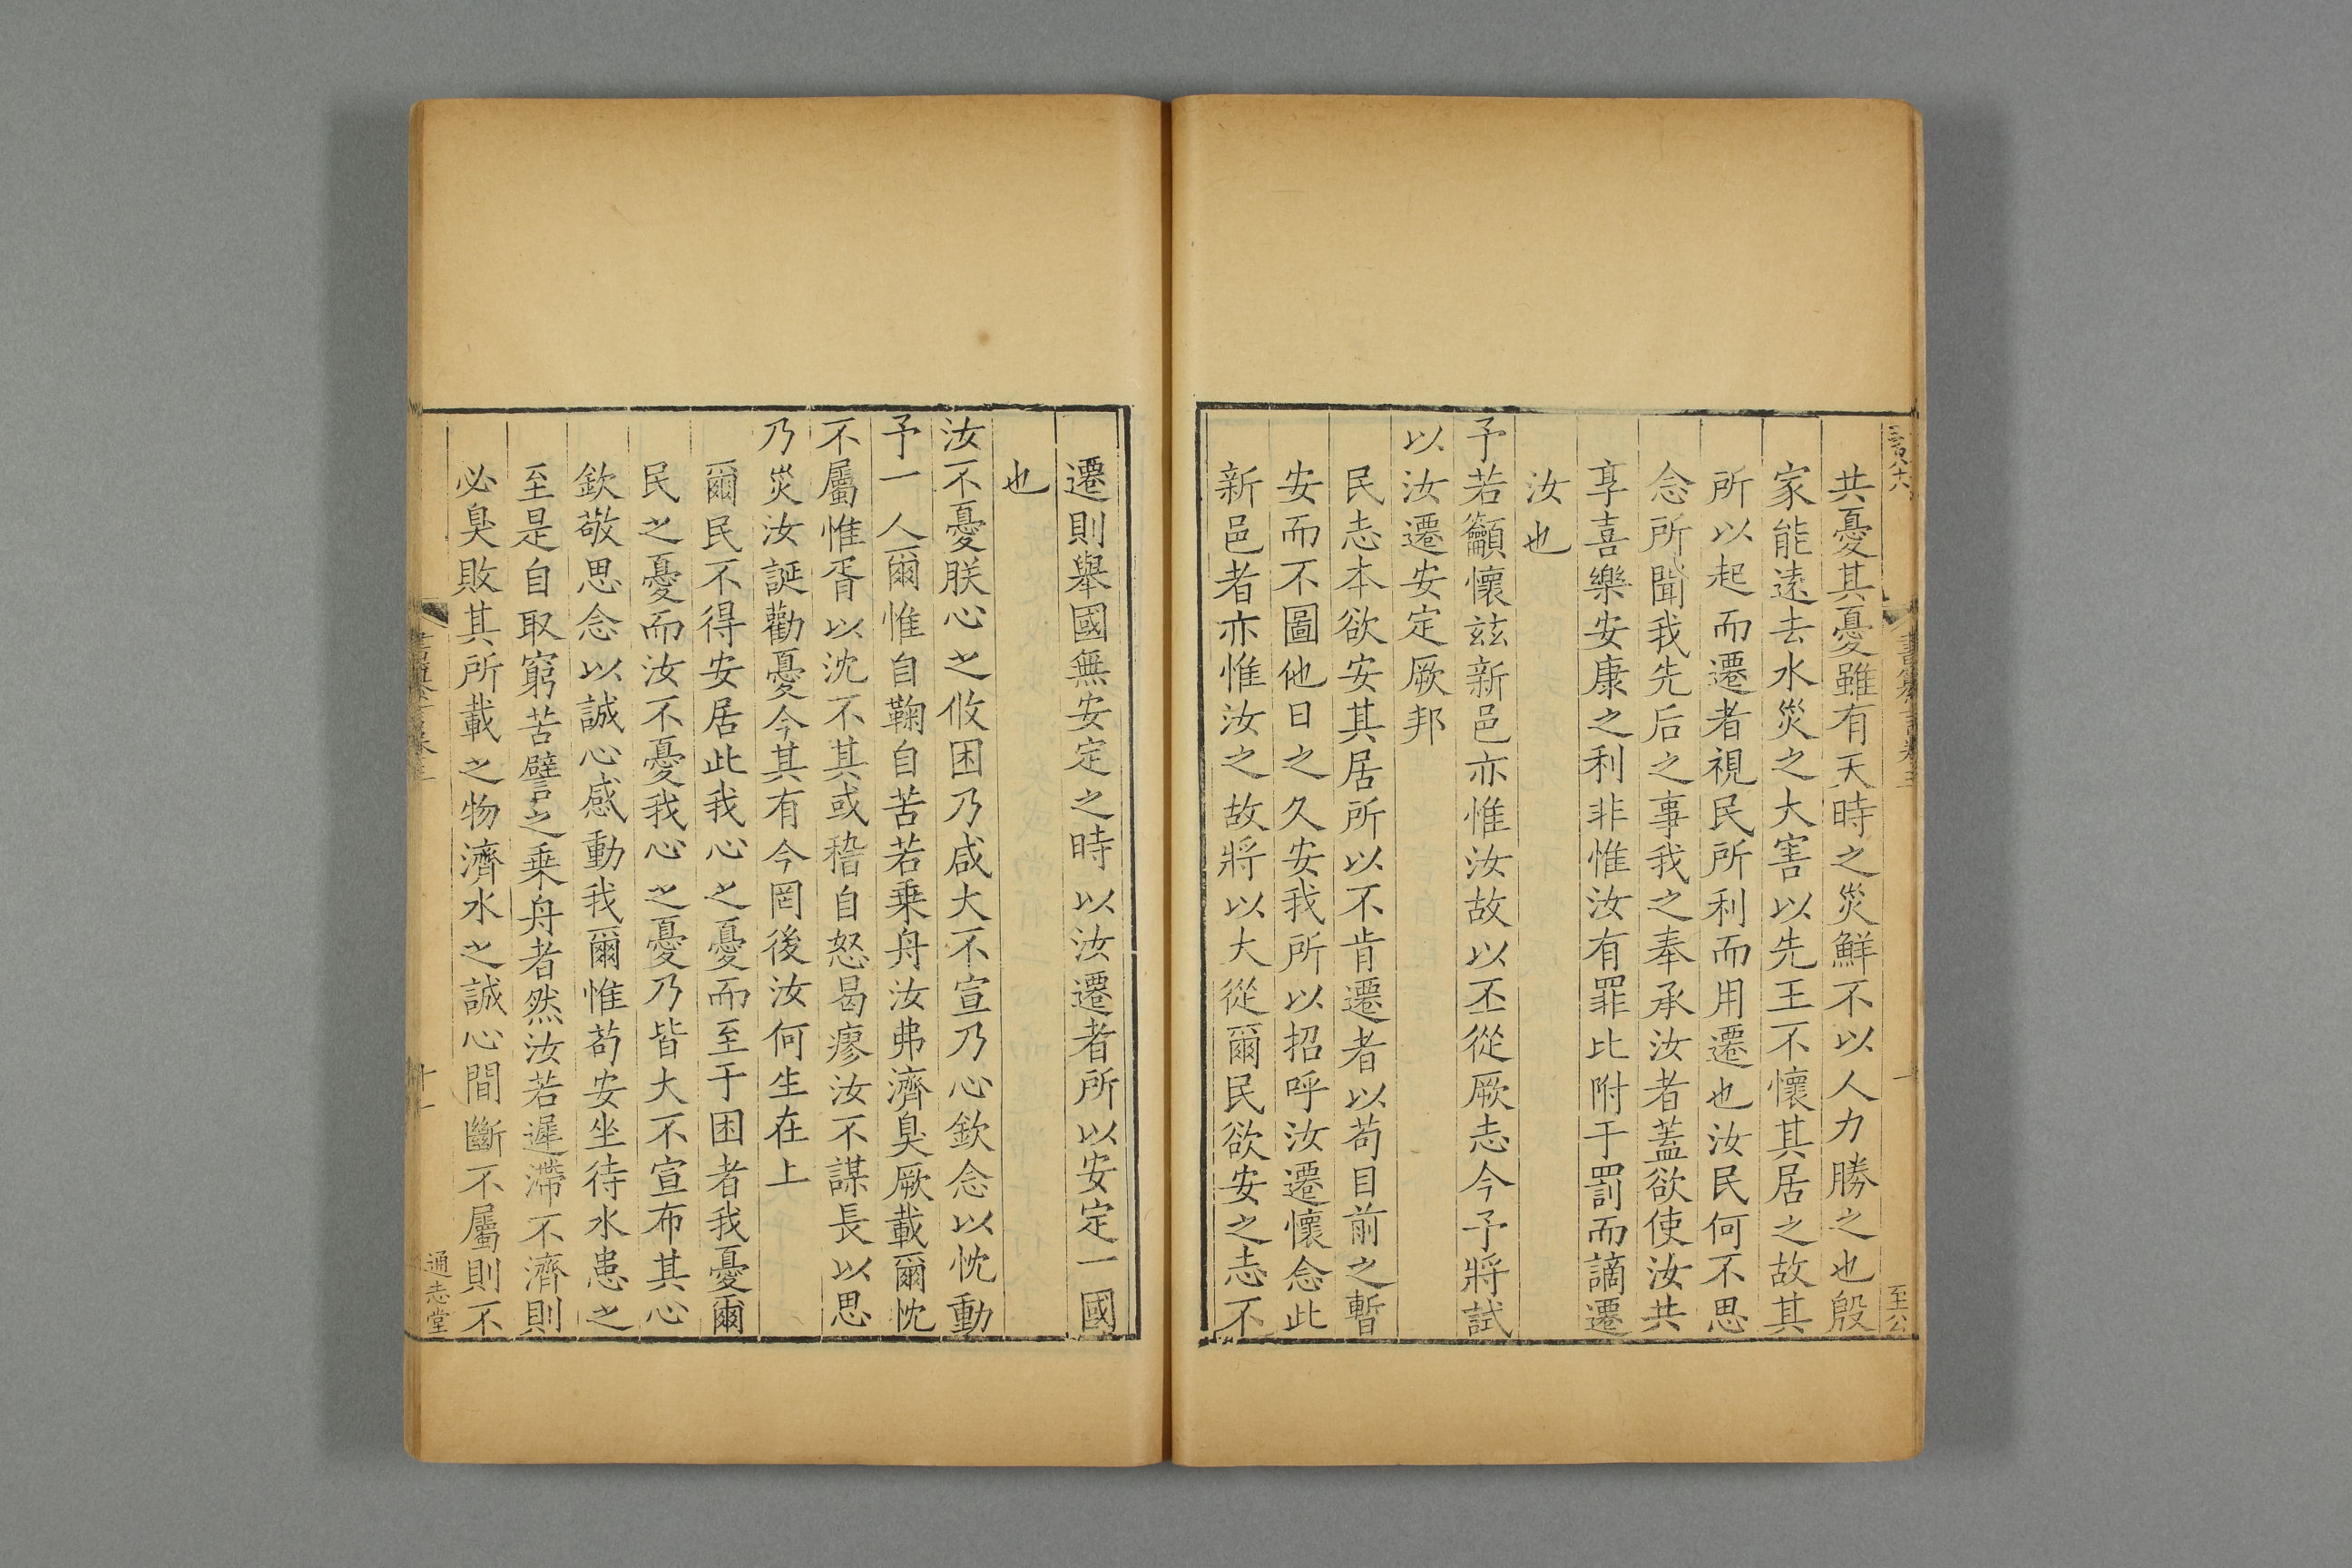 共憂其憂雖有天時之災鮮不以人力勝之也殷
家能遠去水災之大害以先王不懷其居之故其
所以起而遷者視民所利而用遷也汝民何不思
念所聞我先后之事我之奉承汝者蓋欲使汝共
享喜樂安康之利非惟汝有罪比附于罰而謫遷
汝也
予若籲懷兹新邑亦惟汝故以丕從厥志今予將試
以汝遷安定厥邦
民志本欲安其居所以不肯遷者以苟目前之暫
安而不圖他日之久安我所以招呼汝遷懷念此
新邑者亦惟汝之故將以大從爾民欲安之志不
遷則舉國無安定之時以汝遷者所以安定一國
也
汝不憂朕心之攸困乃咸大不宣乃心欽念以忱動
予一人爾惟自鞠自苦若乗舟汝弗濟臭厥載爾忱
不屬惟胥以沈不其或稽自怒曷瘳汝不謀長以思
乃災汝誕勸憂今其有今罔後汝何生在上
爾民不得安居此我心之憂而至于困者我憂爾
民之憂而汝不憂我心之憂乃皆大不宣布其心
欽敬思念以誠心感動我爾惟苟安坐待水患之
至是自取窮苦譬之乗舟者然汝若遲滯不濟則
必臭敗其所載之物濟水之誠心間斷不屬則不
通志堂